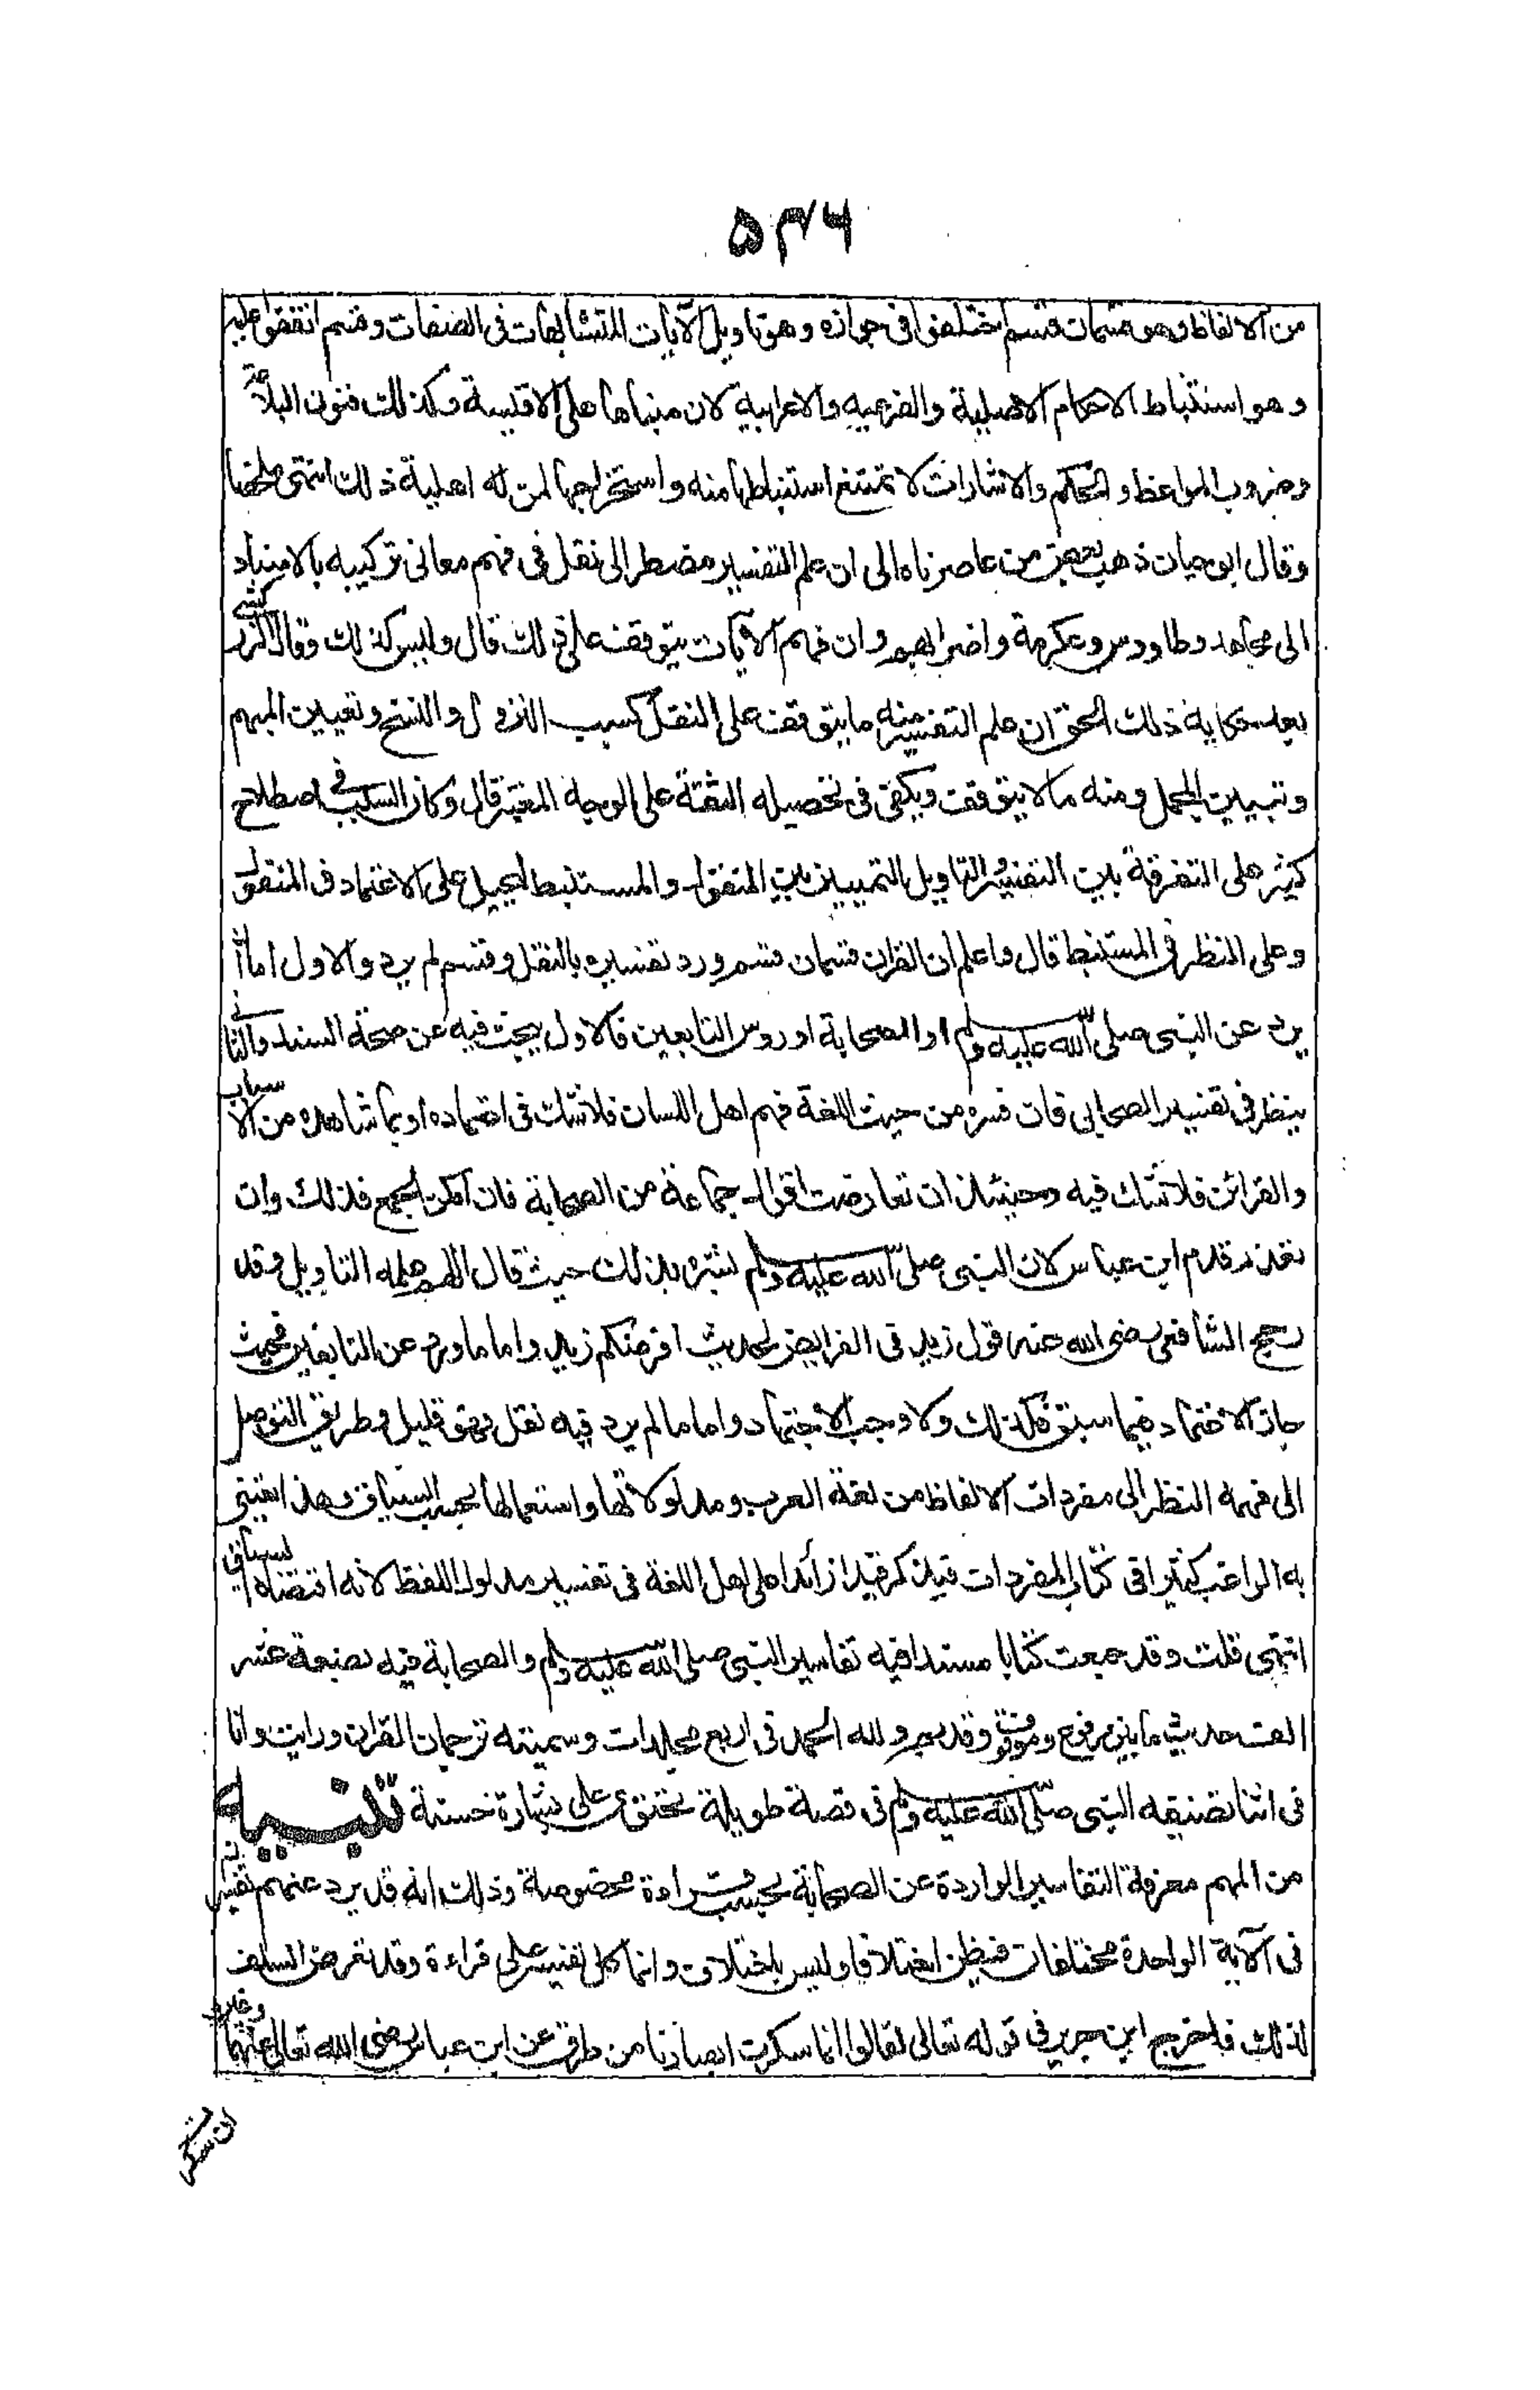 ۵۳۶
من الالفاظ وهو قسمان قسم اختلفوا فى جوازه وهو تاويل الآيات المتشابهات فى الصفات وقسم اتفقوا عليه
وهو استنباط الاحكام الاصلية والفرعيه والاعرابية لان مبناها على الاقيسة وكذلك فنون البلاغة
وضروب المواعظ والحكم والاشارات لا تمتنع استنباطها منه واستخراجها لمن له اهلية ذلك انتهى ملخصا
وقال ابو حيان ذهب بعض من عاصرناه الى ان علم التفسير مضطر الى نقل فى فهم معانى تركيبه بالاسناد
الى مجاهد وطاووس وعكرمة واضرابهم وان فهم الآيات يتوقف على ذلك قال وليس كذلك وقال الزركشى
بعد حكاية ذلك الحق ان علم التفسير منه ما يتوقف على النقل كسبب النزول والنسخ وتعيين المبهم
وتبيين المجمل ومنه ما لا يتوقف ويكفى فى تحصيله الثقة على الوجه المعتبر قال وكان السبب فى اصطلاح
كثير على التفرقة بين التفسير والتاويل التمييز بين المنقول والمستنبط ليحيل على الاعتماد فى المنقول
وعلى النظر فى المستنبط قال واعلم ان القران قسمان قسم ورد تفسيره بالنقل وقسم لم يرد والاول اما ان
يرد عن النبى صلى الله عليه وسلم او الصحابة او روس التابعين فالاول يبحث فيه عن صحة السند والثانى
ينظر فى تفسير الصحابى فان فسره من حيث اللغة فهم اهل اللسان فلا شك فى اعتماده او بما شاهده من الاسباب
والقرائن فلا شك فيه وحينئذ ان تعارضت اقوال جماعة من الصحابة فان امكن الجمع فذلك وان
تعذر قدم ابن عباس لان النبى صلى الله عليه وسلم بشره بذلك حيث قال اللهم علمه التاويل وقد
رجح الشافعى رضى الله عنه قول زيد فى الفرايض لحديث افرضكم زيد واما ما ورد عن التابعين فحيث
جاز الاعتماد فيما سبق فكذلك ولا وجب الاجتهاد واما ما لم يرد فيه نقل فهو قليل وطريق التوصل
الى فهمه النظر الى مفردات الالفاظ من لغة العرب ومدلولاتها واستعمالها بحسب السياق وهذا يعتنى
به الراغب كثيرا فى كتاب المفردات فيذكر قيدا زائدا على اهل اللغة فى تفسير مدلول اللفظ لانه اقتضاه السياق
انتهى قلت وقد جمعت كتابا مسندا فيه تفاسير النبى صلى الله عليه وسلم والصحابة فيه بضعة عشر
الف حديث ما بين مرفوع وموقوف وقد تم ولله الحمد فى اربع مجلدات وسميته ترجمان القران ورايت وانا
فى اثنا تصنيفه النبى صلى الله عليه وسلم فى قصة طويلة تحتوى على بشارة حسنة تنبيه
من المهم معرفة التفاسير الواردة عن الصحابة بحسب قراءة مخصوصة وذلك انه قد يرد عنهم تفسيران
فى الآية الواحدة مختلفات فيظن اختلافا وليس باختلاف وانما كل تفسير على قراءة وقد تعرض السلف
لذلك فاخرج ابن جرير فى قوله تعالى لقالوا انما سكرت ابصارنا من طرق عن ابن عباس رضى الله تعالى عنهما وغيره
ان سكرت